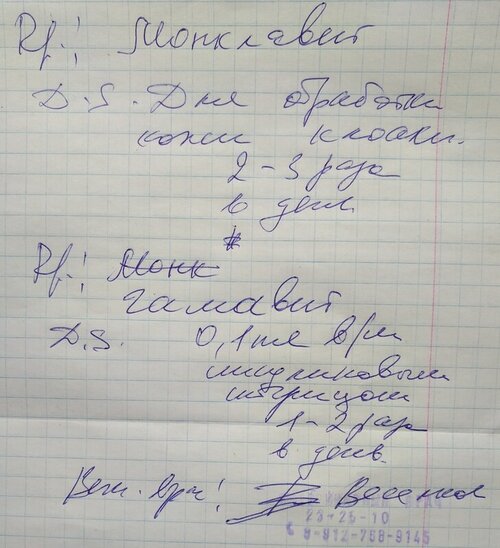 Rp.: Монклавит
D.S. Для обработки
кожи клоаки.
2-3 раза
в день
Rp.: Монк
гамавит
D.S. 0,1 мл в/м
инсулиновым
шприцом
1-2 раза
в день.
Вет. врач:
23-25-10
8-912-758-9145